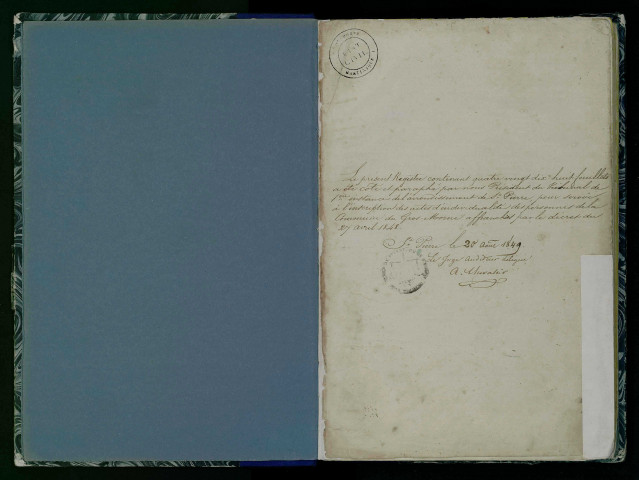 ETAT
CIVIL
MARTINIQUE
Le présent Registre contenant quatre vingt dix huit feuillets
a été coté et paraphé par nous Président du Tribunal de
1ère instance de l'arrondissement de St Pierre, pour servir
à l'inscription des actes d'individualité des personnes de la
Commune du Gros Morne affranchies par le décret du
27 avril 1848.
St Pierre le 20 août 1849
Le Juge auditeur
A.